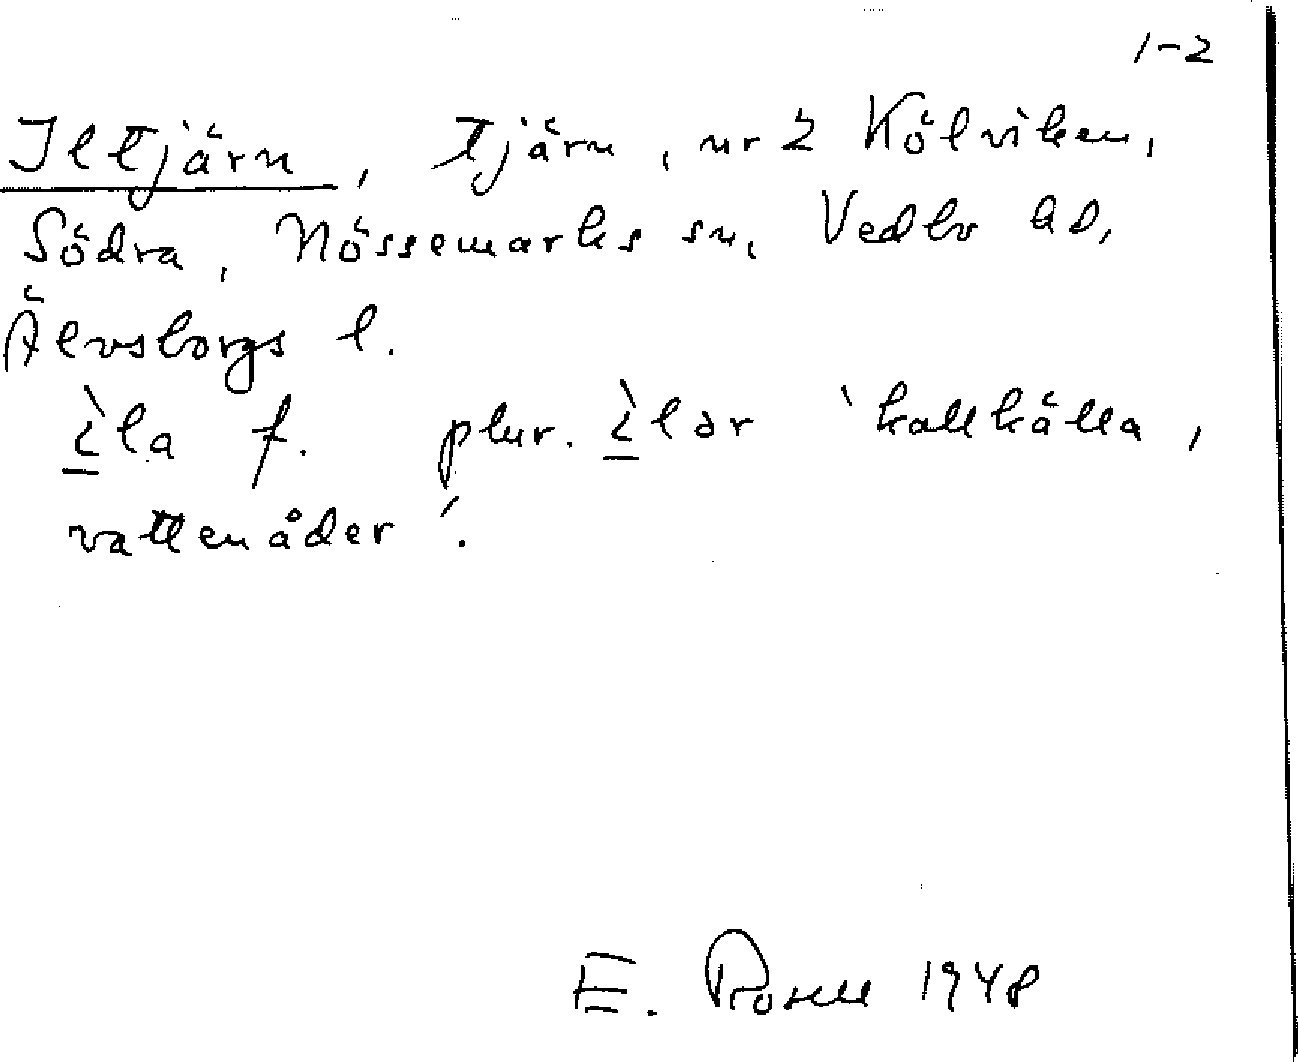 1-2
Iltjärn, tjärn, nr 2 Kölviken,
Södra, Nössemarks sn, Vedbo hd,
Älvsborgs l.
ì̱la f. plur. ì̱lər 'kallkälla,
vattenåder'.
E. Rosell 1948